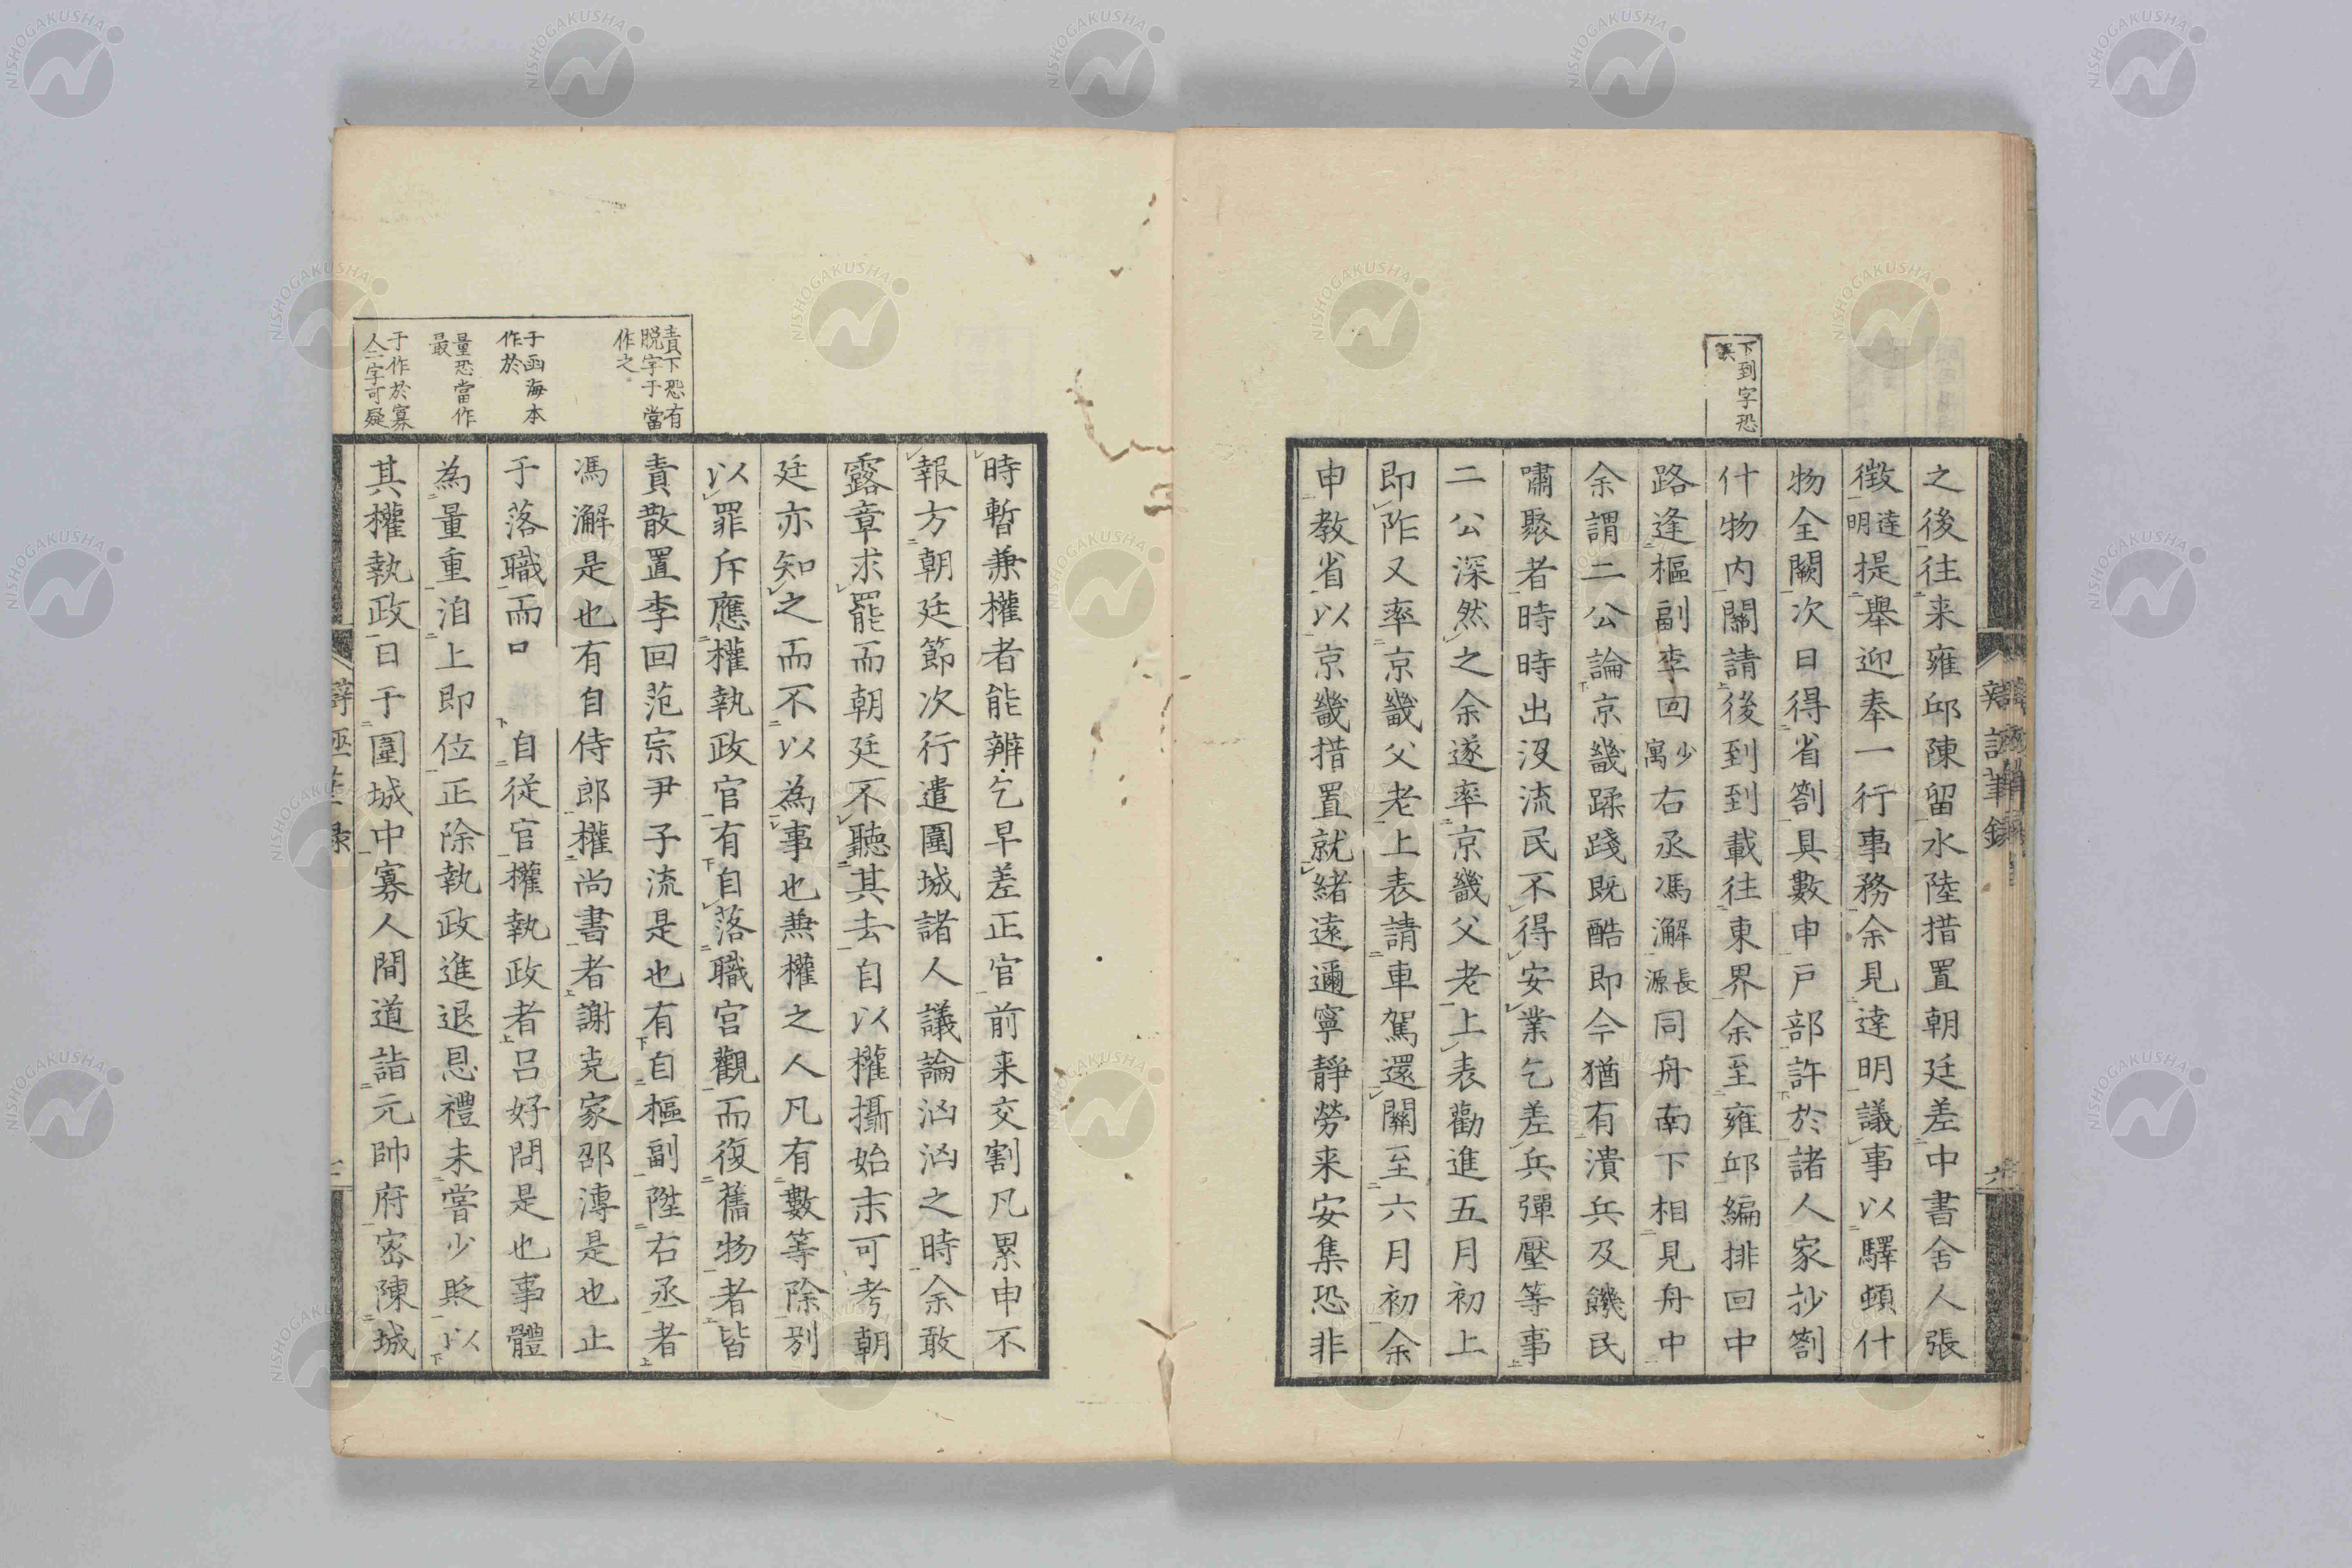 下到字恐
誤
之後往来雍邱陳留水陸措置朝廷差中書舍人張
徴達明提舉迎奉一行事務余見達明議事以驛頓什
物全闕次日得省劄具數申戸部許於諸人家抄劄
什物内關請後到到載往東界余至雍邱編排回中
路逢樞副李回少寓右丞馮澥長源同舟南下相見舟中
余謂二公論京畿蹂踐既酷即今猶有潰兵及饑民
嘯聚者時時出沒流民不得安業乞差兵彈壓等事
二公深然之余遂率京畿父老上表勸進五月初上
即阼又率京畿父老上表請車駕還闕至六月初余
申教省以京畿措置就緒遠邇寧靜勞来安集恐非
辨誣筆錄
責下恐有
脱字于當
作之
于函海本
作於
量恐當作
最
于作於寡
人二字可疑
時暫兼權者能辨乞早差正官前来交割凡累申不
報方朝廷節次行遣圍城諸人議論洶洶之時余敢
露章求罷而朝廷不聽其去自以權攝始末可考朝
廷亦知之而不以為事也兼權之人凡有數等除别
以罪斥應權執政官有自落職宫觀而復舊物者皆
責散置李回范宗尹子流是也有自樞副陞右丞者
馮澥是也有自侍郎權尚書者謝克家邵溥是也止
于落職而口 自従官權執政者呂好問是也事體
為量重洎上即位正除執政進退恩禮未嘗少貶以
其權執政日于圍城中寡人間道詣元帥府密陳城